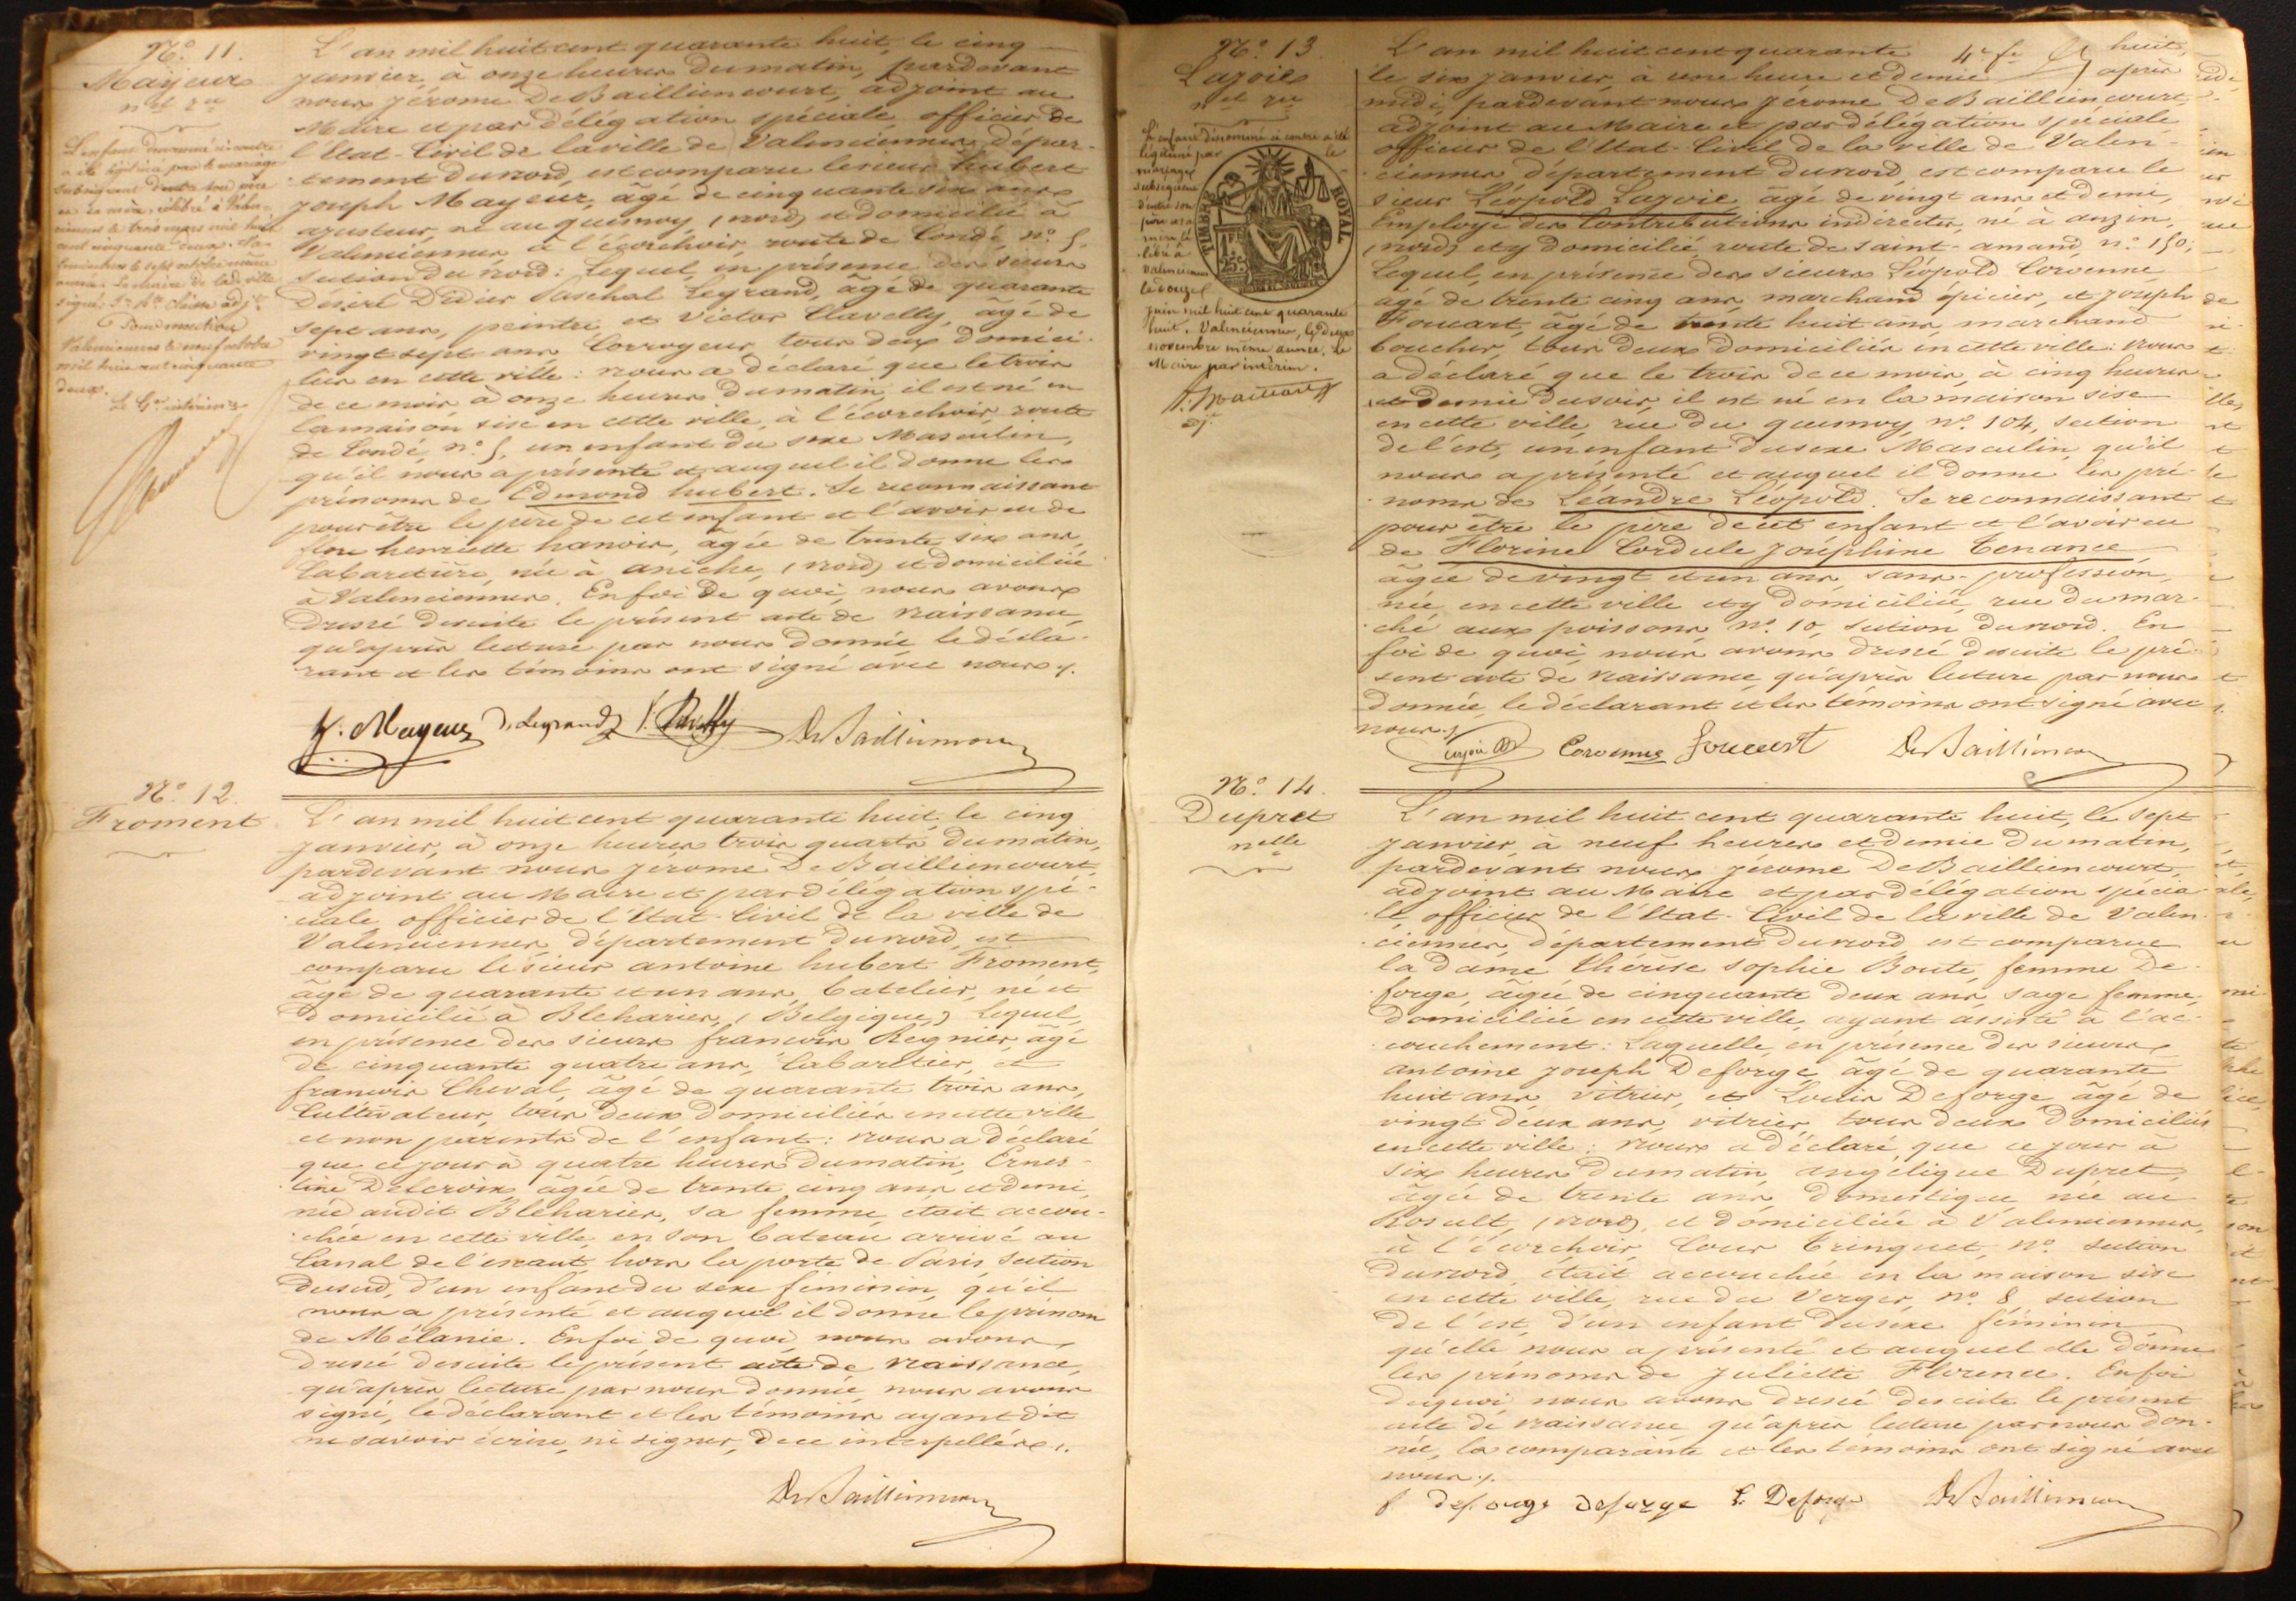 N.° 11.
Mayeur
n.el r.u
L'enfant dénommé ci contre
a été légitimé par le mariage
subséquent d'entre son père
et sa mère, célébré à Valen-
ciennes le trois mars mil huit
cent cinquante deux. Va-
lenciennes le sept octobre même
année. Le Maire de la d. ville
signé
Pour mention
Valenciennes le neuf octobre
mil huit cent cinquante
deux.
L'an mil huit cent quarante huit, le cinq
janvier, à onze heures du matin, pardevant
nous Jérome DeBailliencourt, adjoint au
Maire et par délégation spéciale, officier de
l'État-Civil de la ville de Valenciennes, dépar-
tement du nord, est comparu le sieur hubert
joseph Mayeur, âgé de cinquante six ans,
ajusteur, né au quesnoy, (nord) et domicilié à
Valenciennes à l'écorchoir, route de Condé, n.° 5,
section du nord: Lequel, en présence des sieurs
Désiré Didier Paschal Legrand, âgé de quarante
sept ans, peintre, et Victor Clavelly, âgé de
vingt sept ans, Corroyeur, tous deux domici-
liés en cette ville: nous a déclaré que le trois
de ce mois, à onze heures du matin, il est né en
la maison sise en cette ville, à l'écorchoir, route
de Condé, n.° 5, un enfant du sexe Masculin,
qu'il nous a présenté et auquel il donne les
prénoms de Edmond hubert. Se reconnaissant
pour être le père de cet enfant et l'avoir eu de
flore henriette hanoir, âgée de trente six ans,
Cabaretière, née à aniche, (nord) et domiciliée
à Valenciennes. En foi de quoi, nous avons
dressé desuite le présent acte de naissance,
qu'après lecture par nous donnée, le décla-
rant et les témoins ont signé avec nous ./.
h. Mayeur D. Legrand V. Clavelly DeBailliencourt
N.° 12.
Froment
L'an mil huit cent quarante huit, le cinq
janvier, à onze heures trois quarts du matin,
pardevant nous Jérome DeBailliencourt,
adjoint au Maire et par délégation spé-
ciale, officier de l'État-Civil de la ville de
Valenciennes, département du nord, est
comparu le sieur antoine hubert Froment,
âgé de quarante et un ans, batelier, né et
domicilié à Bléharies, (Belgique) Lequel,
en présence des sieurs françois Régnier, âgé
de cinquante quatre ans, Cabaretier, et
françois Cheval, âgé de quarante trois ans,
Cultivateur, tous deux domiciliés en cette ville
et non parents de l'enfant: nous a déclaré
que ce jour à quatre heures du matin, Ernes-
tine Delcroix, âgée de trente cinq ans et demi,
née audit Bléharies, sa femme, était accou-
chée en cette ville, en son bateau arrivé au
Canal de l'escaut, hors la porte de Paris, section
du sud, d'un enfant du sexe féminin, qu'il
nous a présenté et auquel il donne le prénom
de Mélanie. En foi de quoi, nous avons,
dressé desuite le présent acte de naissance,
qu'après lecture par nous donnée, nous avons
signé, le déclarant et les témoins ayant dit
ne savoir écrire, ni signer, de ce interpellés ./.
DeBailliencourt
N.° 13.
Lazoie
n.el r.u
L'enfant dénommé ci contre a été
légitimé par le
mariage
subséquent
d'entre son
père et sa
mère, cé-
lébré à
Valenciennes
le douze
juin mil huit cent quarante
huit. Valenciennes, le deux
novembre même année. Le
Maire par intérim.
TIMBRE ROYAL
1F. 25c.
4.e f.e
L'an mil huit cent quarante huit,
le six janvier, à une heure et demie après
midi, pardevant nous Jérome DeBailliencourt,
adjoint au Maire et par délégation spéciale
officier de l'État-Civil de la ville de Valen-
ciennes, département du nord, est comparu le
sieur Léopold Lazoie, âgé de vingt ans et demi,
Employé des Contributions indirectes, né à anzin,
(nord) et y domicilié, route de saint-amand, n.° 150;
Lequel, en présence des sieurs Léopold Corvenne,
âgé de trente cinq ans, marchand épicier, et joseph
Foucart, âgé de trente huit ans, marchand
boucher, tous deux domiciliés en cette ville: nous
a déclaré que le trois de ce mois, à cinq heures
et demie du soir, il est né en la maison sise
en cette ville, rue du quesnoy, n.° 104, section
de l'est, un enfant du sexe Masculin, qu'il
nous a présenté et auquel il donne les pré-
noms de Léandre Léopold. Se reconnaissant
pour être le père de cet enfant et l'avoir eu
de Florine Cordule Joséphine Tenance
âgée de vingt et un ans, sans-profession,
née en cette ville et y domiciliée, rue du mar-
ché aux poissons, n.° 10, section du nord. En
foi de quoi, nous avons dressé desuite le pré-
sent acte de naissance, qu'après lecture par nous
donnée, le déclarant et les témoins ont signé avec
nous ./.
Corvenne Foucart DeBailliencourt
N.° 14.
Dupret
n.elle
L'an mil huit cent quarante huit, le sept
janvier, à neuf heures et demie du matin,
pardevant nous Jérome DeBailliencourt,
adjoint au Maire et par délégation spécia-
le, officier de l'État-Civil de la ville de Valen-
ciennes, département du nord, est comparue
la dame Thérèse sophie Boute, femme De-
forge, âgée de cinquante deux ans, sage femme,
domiciliée en cette ville, ayant assisté à l'ac-
couchement: Laquelle, en présence des sieurs
antoine joseph Deforge, âgé de quarante
huit ans, vitrier, et Louis Deforge, âgé de
vingt deux ans, vitrier, tous deux domiciliés
en cette ville: nous a déclaré que ce jour à
six heures du matin, angélique Dupret,
âgée de trente ans, domestique, née au
Rosult, (nord), et domiciliée à Valenciennes,
à l'écorchoir, Cour Trinquet, n.° section
du nord, était accouchée en la maison sise
en cette ville, rue du Verger, n.° 8, section
de l'est, d'un enfant du sexe féminin
qu'elle nous a présenté et auquel elle donne
les prénoms de Juliette Florence. En foi
de quoi, nous avons dressé desuite le présent
acte de naissance, qu'après lecture par nous don-
née, la comparante et les témoins ont signé avec
nous ./.
f. deforge deforge L. Deforge DeBailliencourt